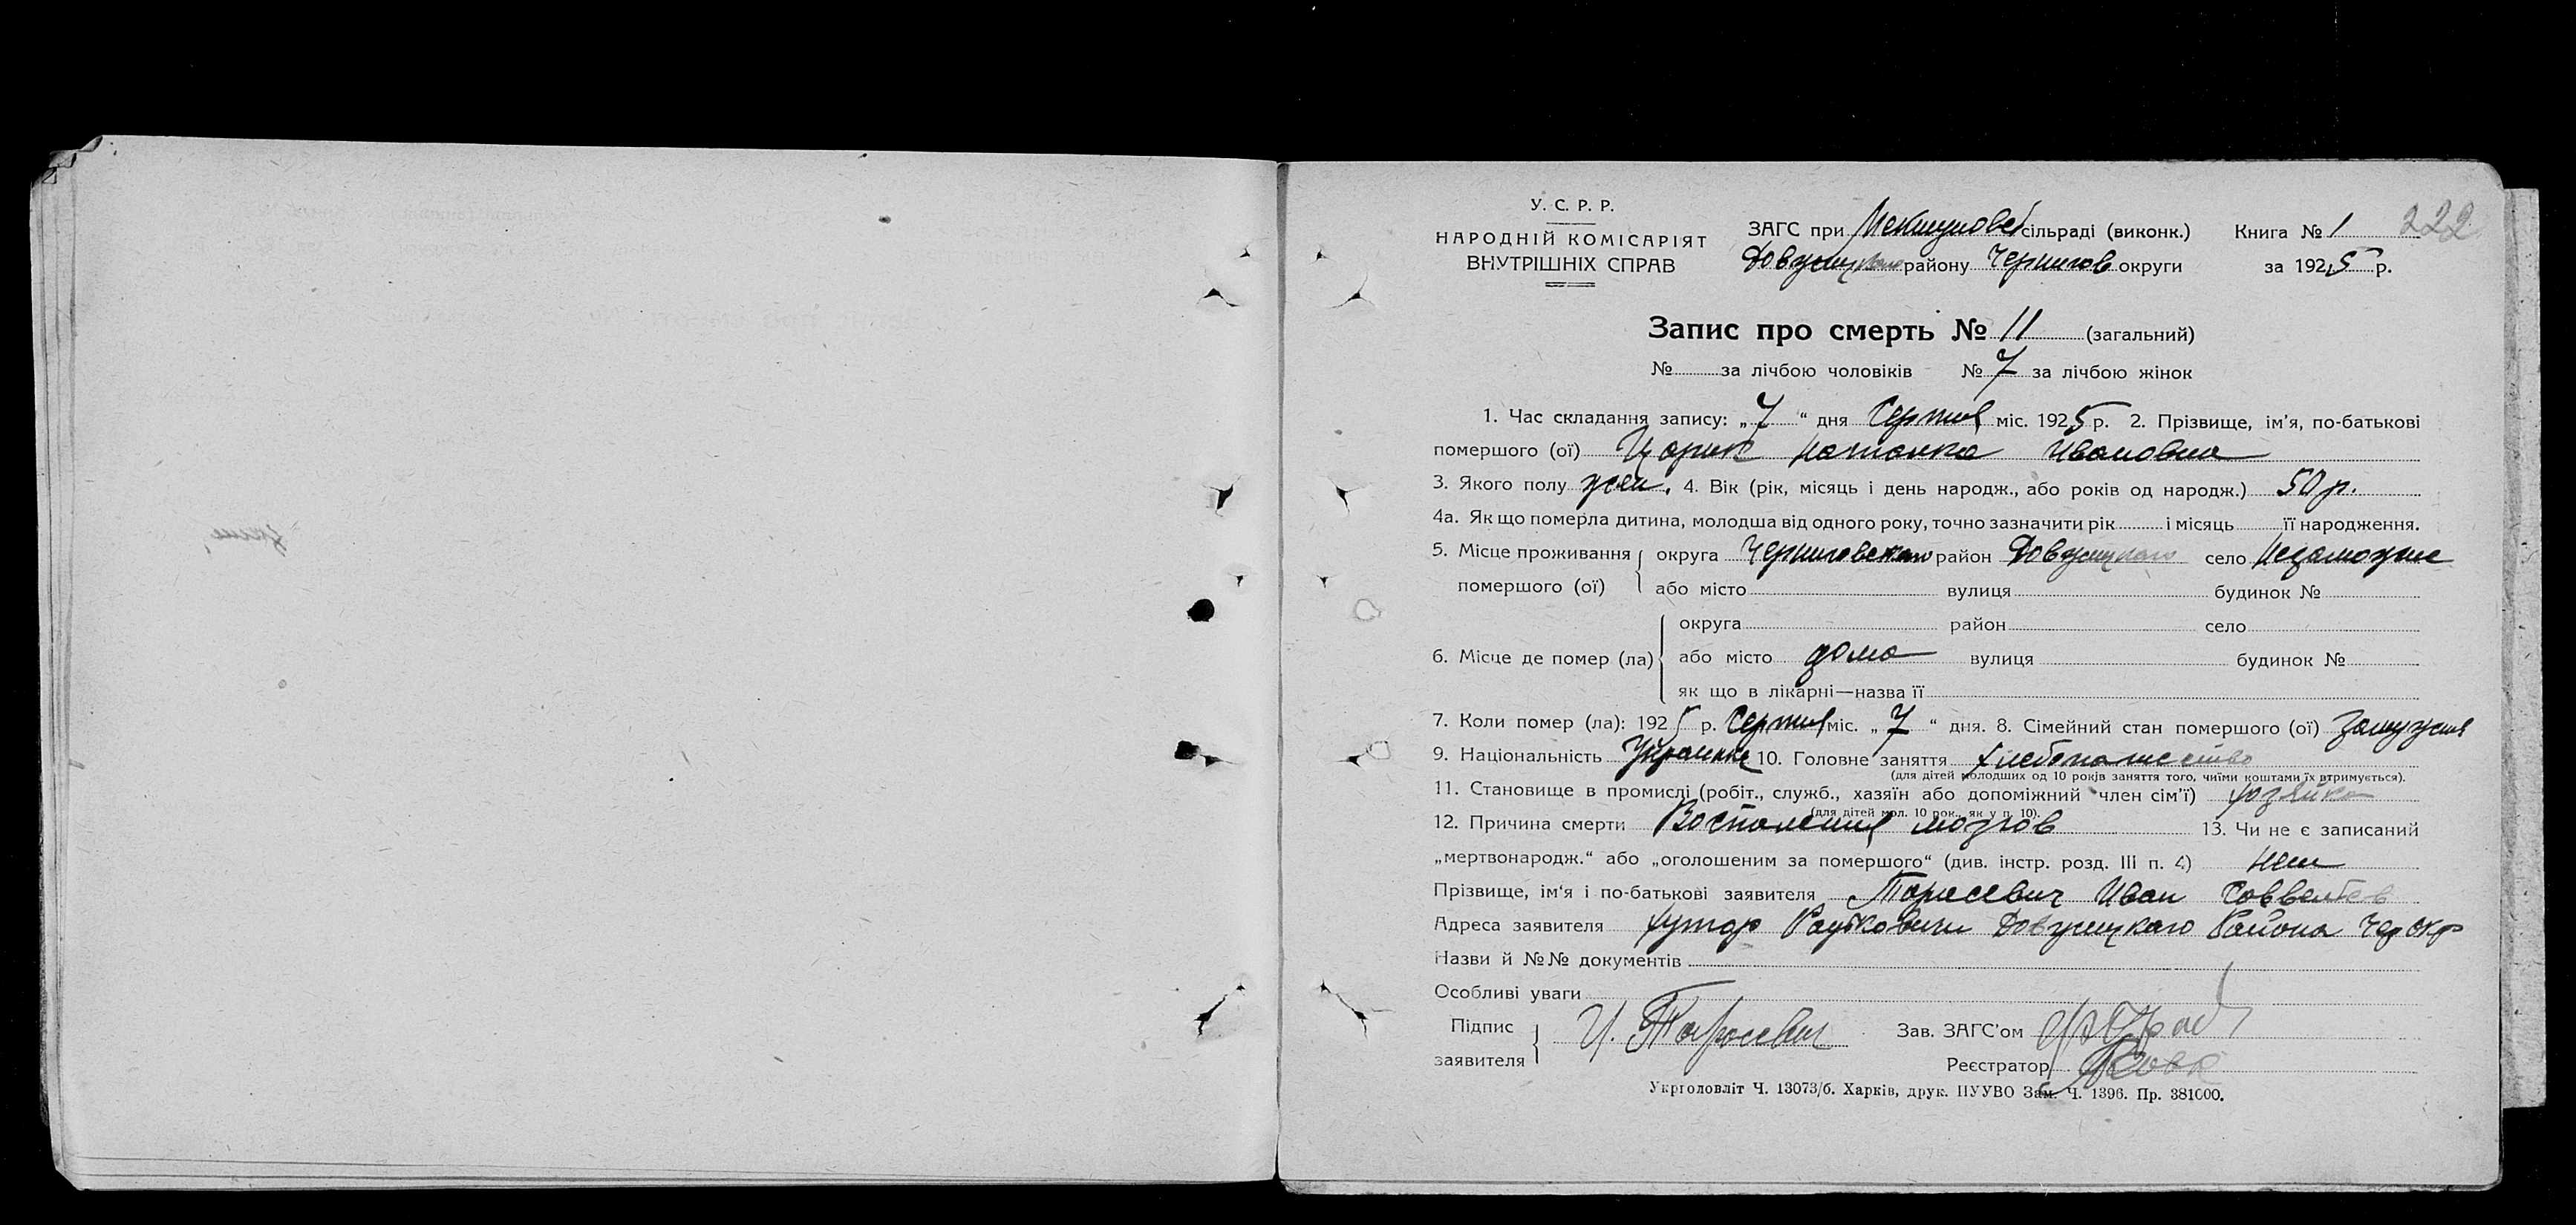 222
У. С. Р. Р.
НАРОДНІЙ КОМІСАРІЯТ
ВНУТРІШНІХ СПРАВ
ЗАГС при сільраді (виконк.) Книга № 1
району Чернигов округи за 1925 р.
Запис про смерть № 11 (загальний)
№ за лічбою чоловіків № 7 за лічбою жінок
1. Час складання запису: „7“ дня Серпня міс. 1925 р. 2. Прізвище, ім'я, по-батькові
помершого (ої) Ивановна
3. Якого полу жен. 4. Вік (рік, місяць і день народж., або років од народж.) 50 р.
4а. Як що померла дитина, молодша від одного року, точно зазначити рік і місяць її народження.
5. Місце проживання округа район село
помершого (ої) або місто вулиця будинок №
округа район село
6. Місце де помер (ла) або місто дома вулиця будинок №
як що в лікарні—назва її
7. Коли помер (ла): 1925 р. Серпня міс. „7“ дня. 8. Сімейний стан помершого (ої) замужня
9. Національність Украинка 10. Головне заняття хлебопашество
(для дітей молодших од 10 років заняття того, чиїми коштами їх втримується).
11. Становище в промислі (робіт., служб., хазяїн або допоміжний член сім'ї) хозяйка
(для дітей мол. 10 рок., як у п. 10).
12. Причина смерти Воспаления мозгов 13. Чи не є записаний
„мертвонародж.“ або „оголошеним за помершого“ (див. інстр. розд. III п. 4) нет
Прізвище, ім'я і по-батькові заявителя Тарасевич Иван
Адреса заявителя хутор Района Чер Окр
Назви й №№ документів
Особливі уваги
Підпис И. Тарасевич Зав. ЗАГС'ом
заявителя Реєстратор
Укрголовліт Ч. 13073/б. Харків, друк. ПУУВО Зам. Ч. 1396. Пр. 381000.